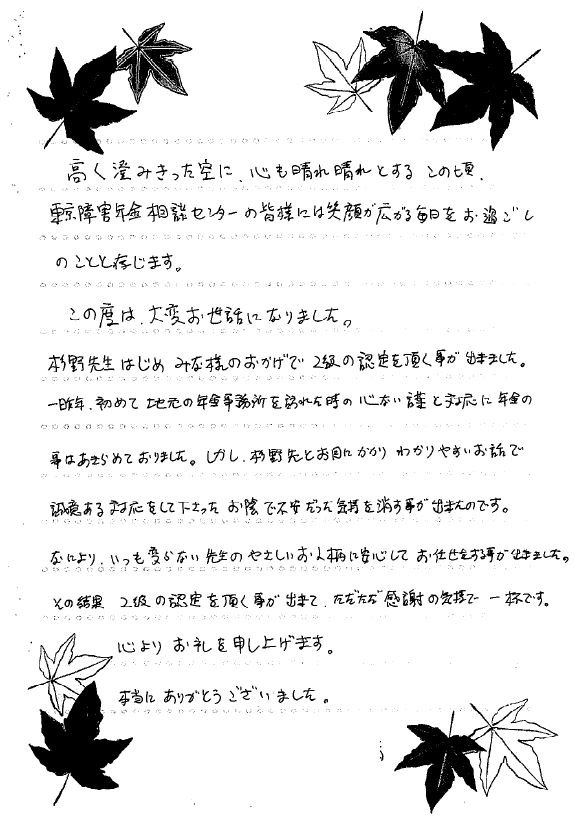 高く澄みきった空に、心も晴れ晴れとするこの頃、
東京障害年金相談センターの皆様には笑顔が広がる毎日をお過ごし
のことと存じます。
この度は、大変お世話になりました。
杉野先生はじめ みな様のおかげで 2級の認定を頂く事が出来ました。
一昨年、初めて地元の年金事務所を訪れた時の心ない言葉と対応に年金の
事はあきらめておりました。しかし、杉野先生とお目にかかり わかりやすいお話で
誠意ある対応をして下さった お陰で不安だった気持を消す事が出来たのです。
なにより、いつも変らない先生のやさしいお人柄に安心して お任せをする事が出来ました。
その結果 2級の認定を頂く事が出来て、ただただ感謝の気持で一杯です。
心よりお礼を申し上げます。
本当にありがとうございました。